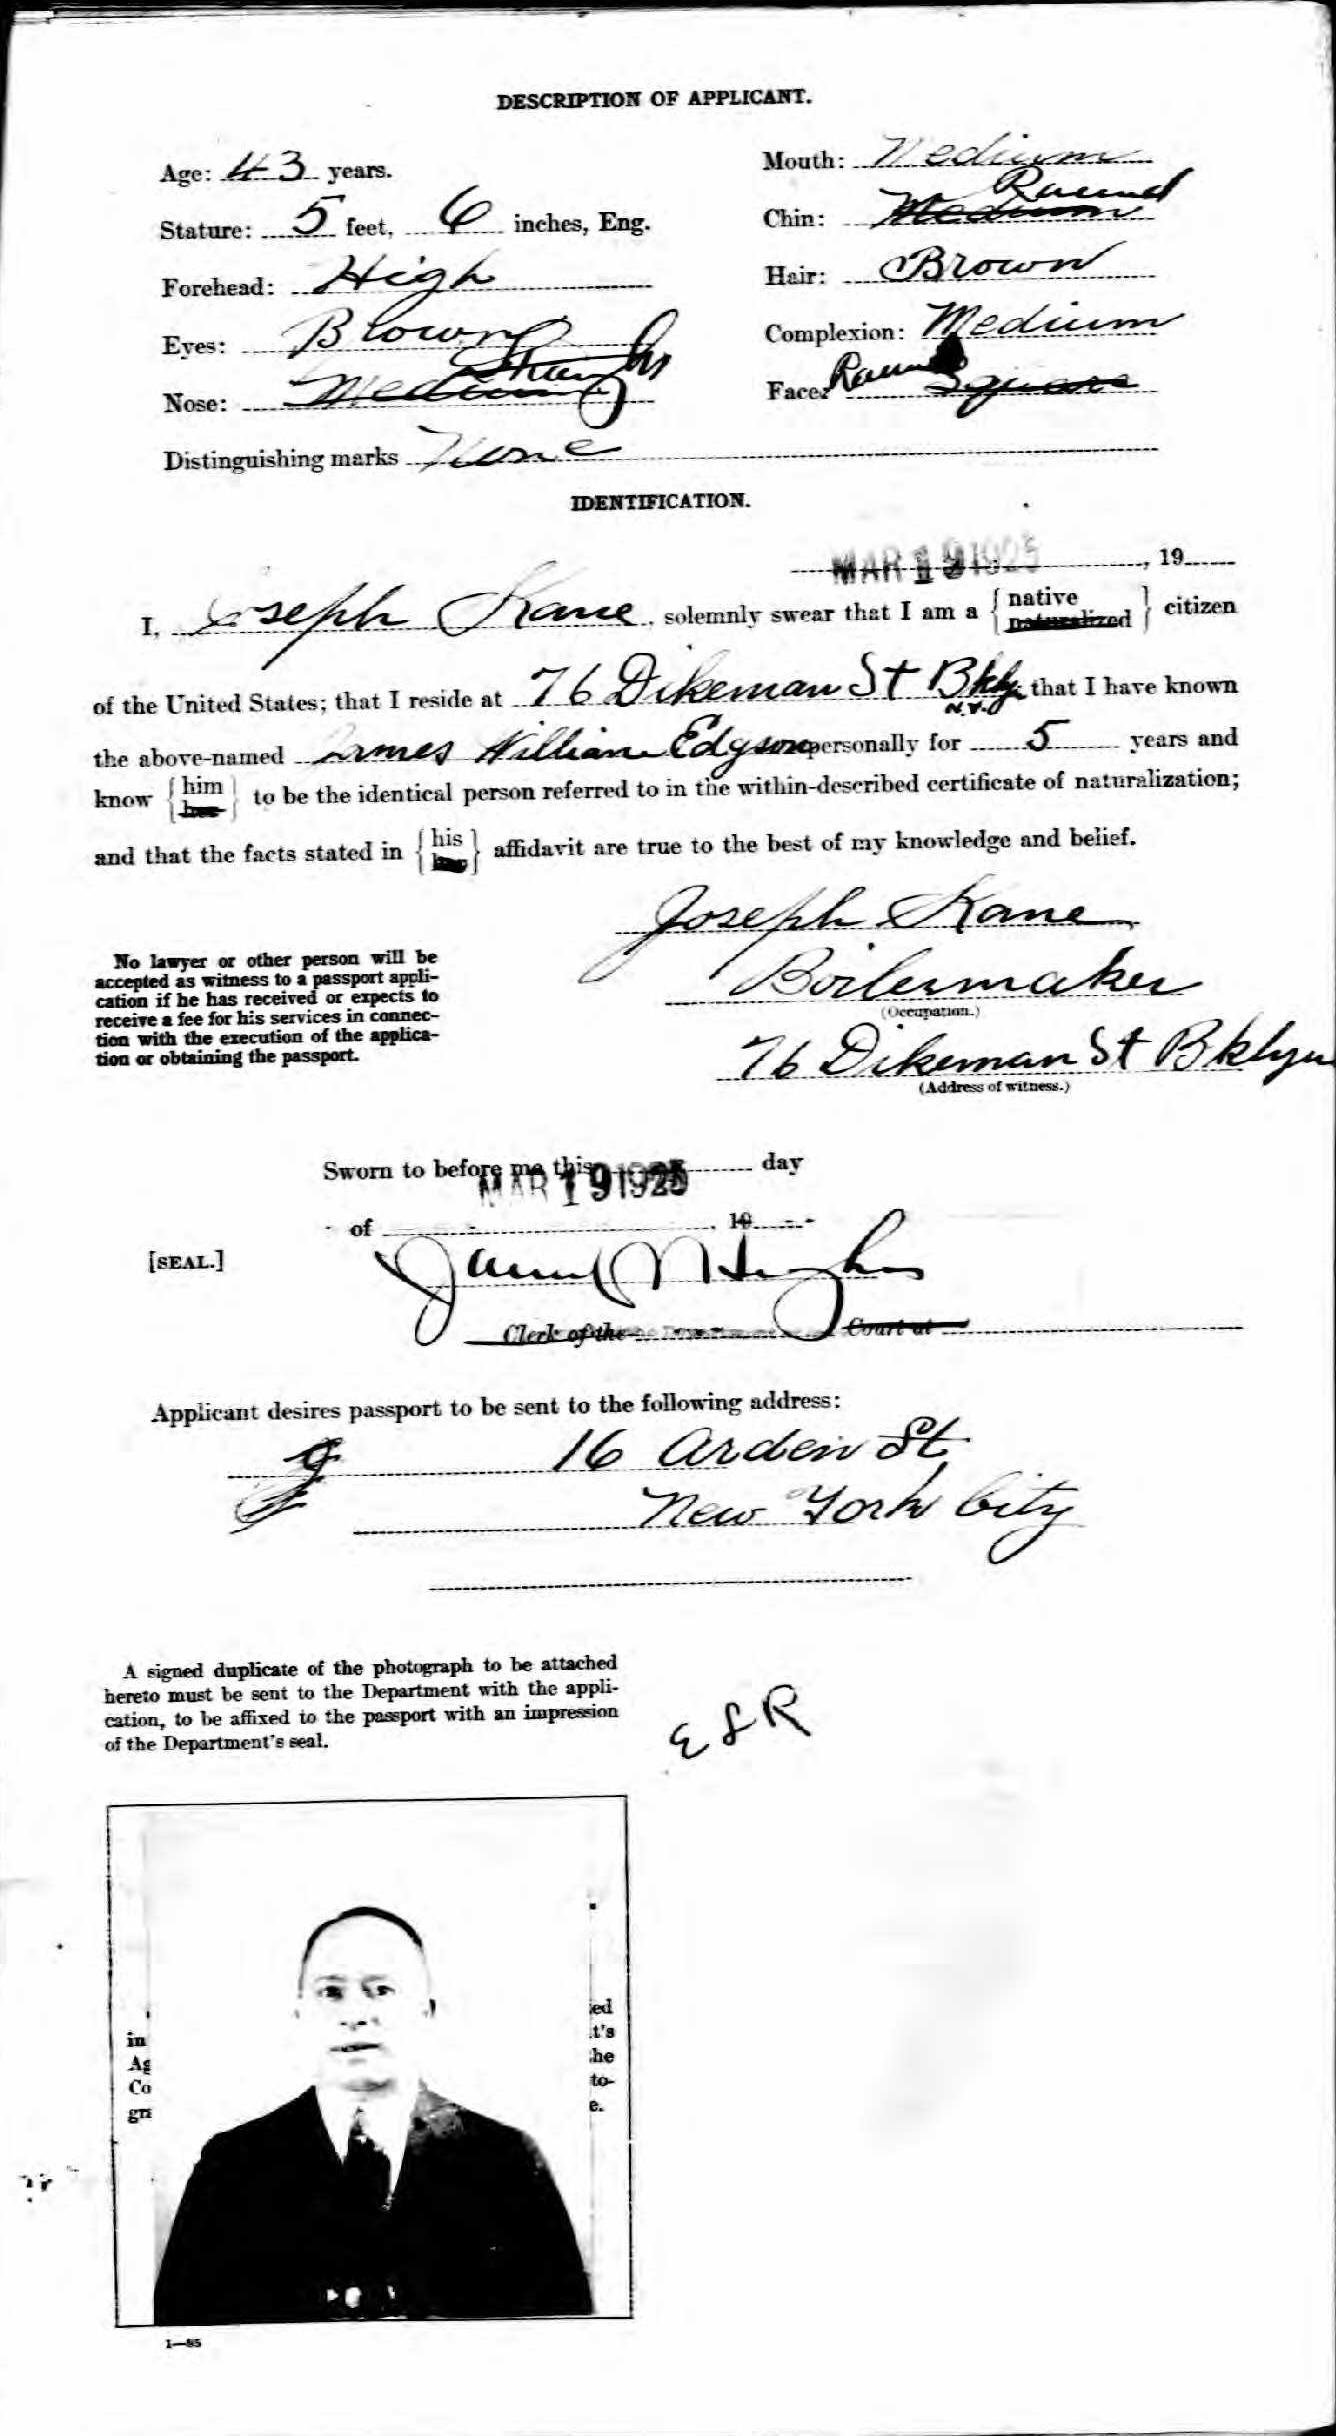 DESCRIPTION OF APPLICANT.
Age: 43 years.
Mouth: Medium
Stature: 5 feet, 6 inches, Eng.
Chin: Medium Round
Forehead: High
Hair: Brown
Eyes: Brown
Complexion: Medium
Nose: Medium Straight
Face: Round Square
Distinguishing marks None
IDENTIFICATION.
MAR 19 1925, 19
I, Joseph Kane, solemnly swear that I am a { native naturalized } citizen
of the United States; that I reside at 76 Dikeman St Bkly N.Y. that I have known
the above-named James William Edgson personally for 5 years and
know { him her } to be the identical person referred to in the within-described certificate of naturalization;
and that the facts stated in { his her } affidavit are true to the best of my knowledge and belief.
Joseph Kane
Boilermaker
(Occupation.)
76 Dikeman St Bklyn
(Address of witness.)
No lawyer or other person will be
accepted as witness to a passport appli-
cation if he has received or expects to
receive a fee for his services in connec-
tion with the execution of the applica-
tion or obtaining the passport.
Sworn to before me this MAR 19 1925 day
of , 19
[SEAL.]
Hughes
Clerk of the Court at
Applicant desires passport to be sent to the following address:
16 Arden St
New York City
A signed duplicate of the photograph to be attached
hereto must be sent to the Department with the appli-
cation, to be affixed to the passport with an impression
of the Department's seal.
ESR
ed
in t's
Ag he
Co to-
gra e.
1—85